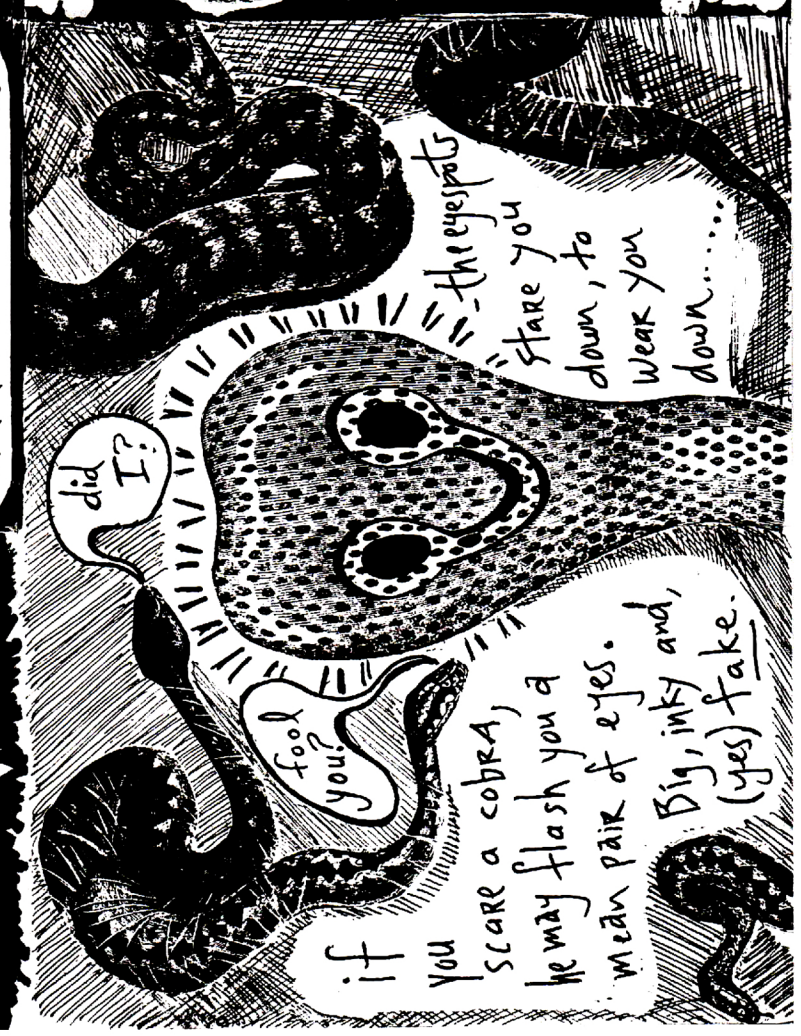 if
you
scare a cobra,
he may flash you a
mean pair of eyes.
Big, inky and,
(yes) fake.
did
I?
fool
you?
- the eyespots
stare you
down, to
wear you
down......